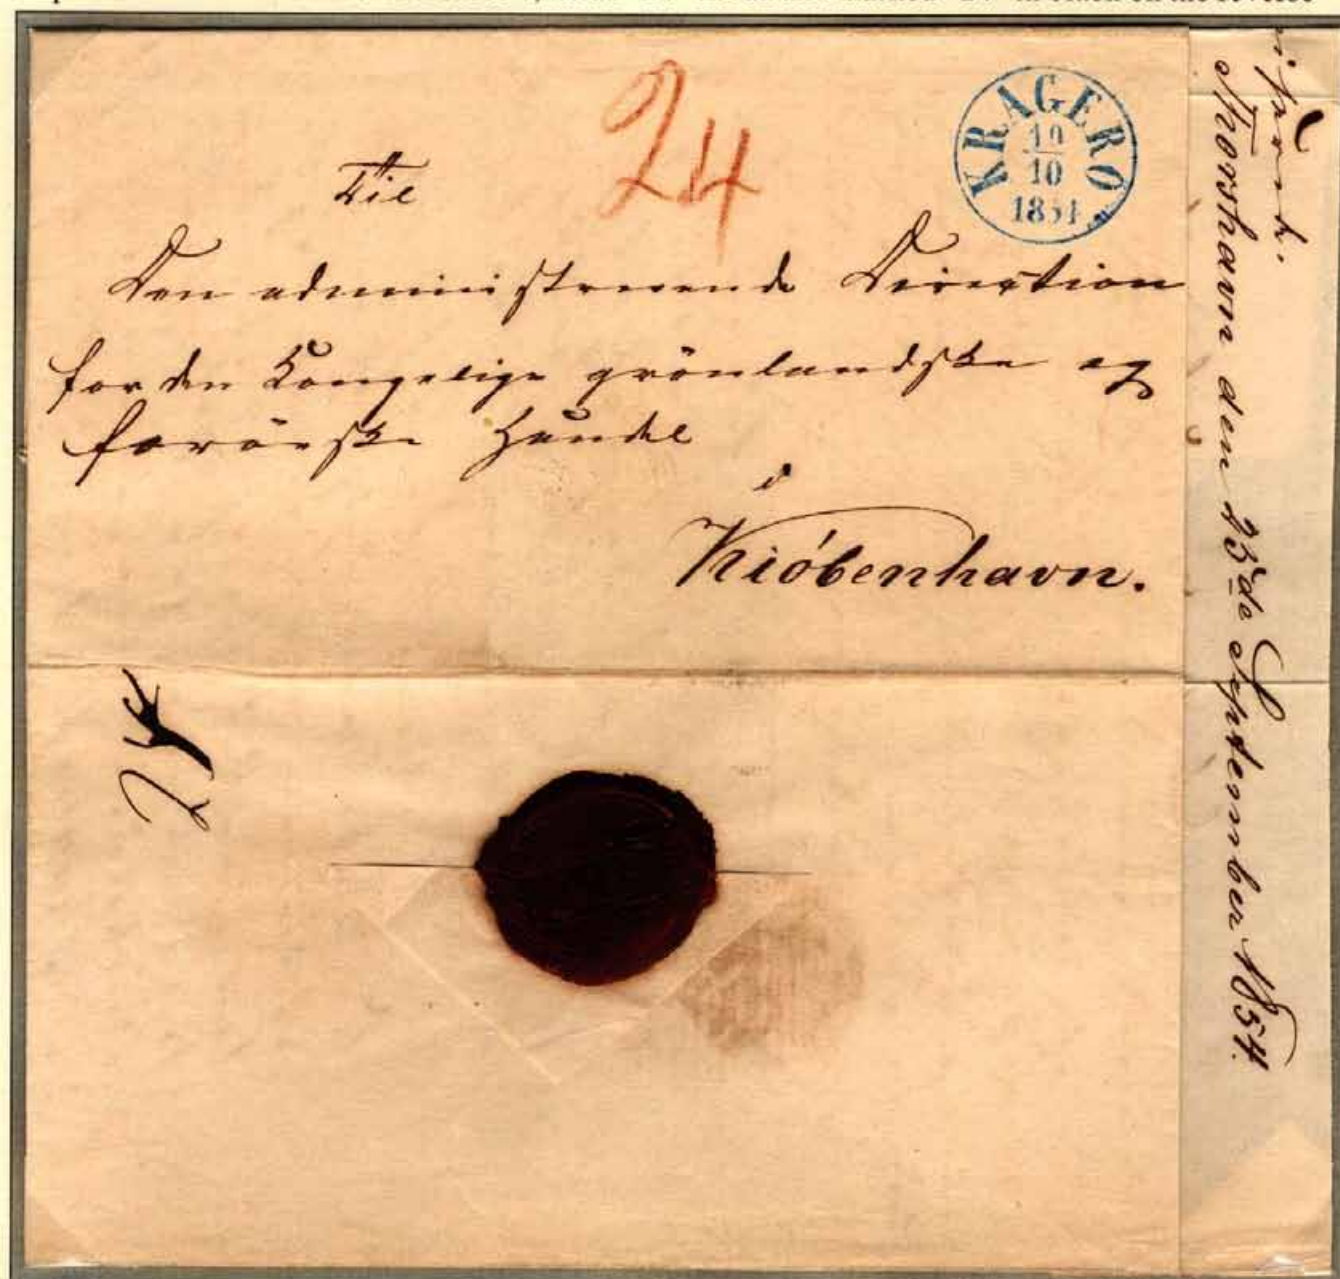 24
KRAGERÖ
10
10
1854
Til
Den administrerende Direction
for den Kongelige grönlandske og
færöeske Handel
i
Kiöbenhavn.
Thorshavn den 23de September 1854.
on the reverse